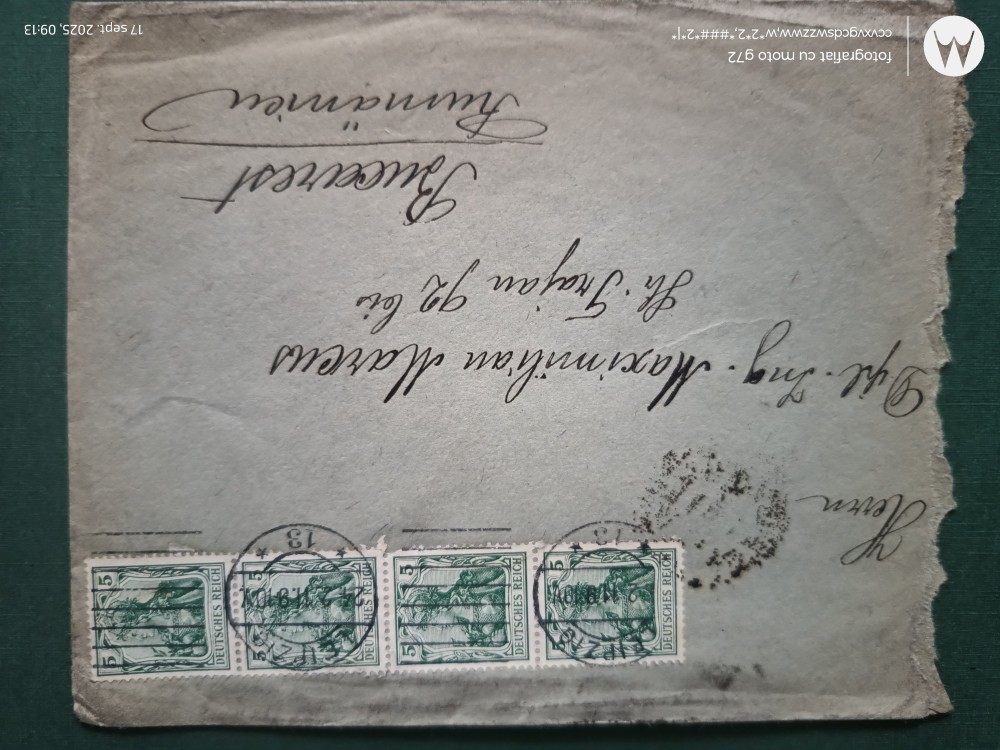 Herrn
Dipl. Ing. Maximilian Marcus
Str. Trajan 92 bis
Bucarest
Rumänien
5 DEUTSCHES REICH 5
5 DEUTSCHES REICH 5
5 DEUTSCHES REICH 5
5 DEUTSCHES REICH 5
LEIPZIG
13
LEIPZIG
13
fotografiat cu moto g72
ccvxvgcdswzzwwww,w"2"2,"###"2"|"
17 sept. 2025, 09:13